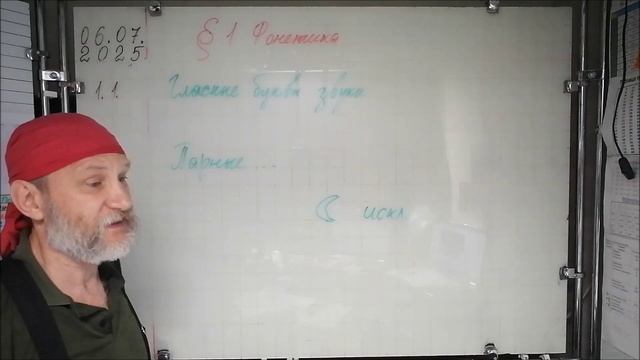 06.07.
2025
§ 1 Фонетика
1.1. Гласные буквы звуки
Парные ...
искл